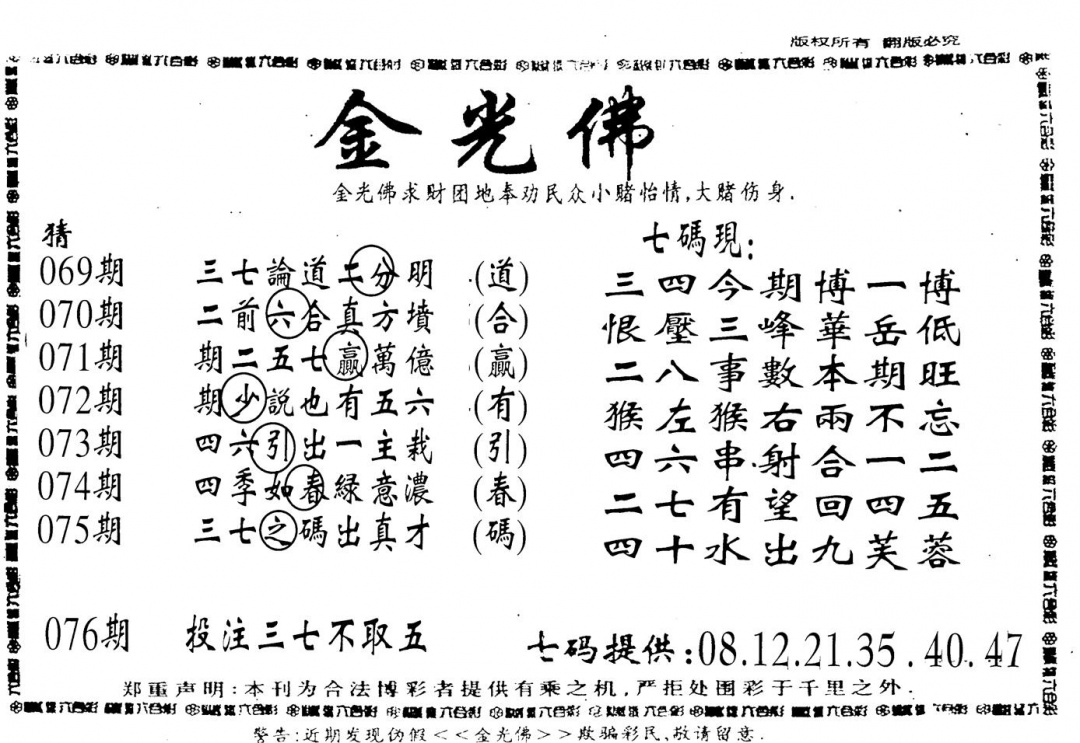 版权所有 翻版必究
金光佛
金光佛求财团地奉劝民众小赌怡情,大赌伤身.
猜
069期 三七論道二分明 (道)
070期 二前六合真方墳 (合)
071期 期二五七贏萬億 (贏)
072期 期少説也有五六 (有)
073期 四六引出一主栽 (引)
074期 四季如春緑意濃 (春)
075期 三七之碼出真才 (碼)
七碼現:
三四今期博一博
恨壓三峰華岳低
二八事數本期旺
猴左猴右兩不忘
四六串射合一二
二七有望回四五
四十水出九芙蓉
076期 投注三七不取五
七码提供:08.12.21.35.40.47
郑重声明:本刊为合法博彩者提供有乘之机,严拒处围彩于千里之外.
警告:近期发现伪假<<金光佛>>欺骗彩民,敬请留意.